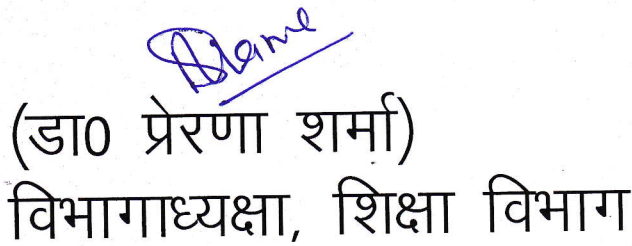 (डा0 प्रेरणा शर्मा)
विभागाध्यक्षा, शिक्षा विभाग